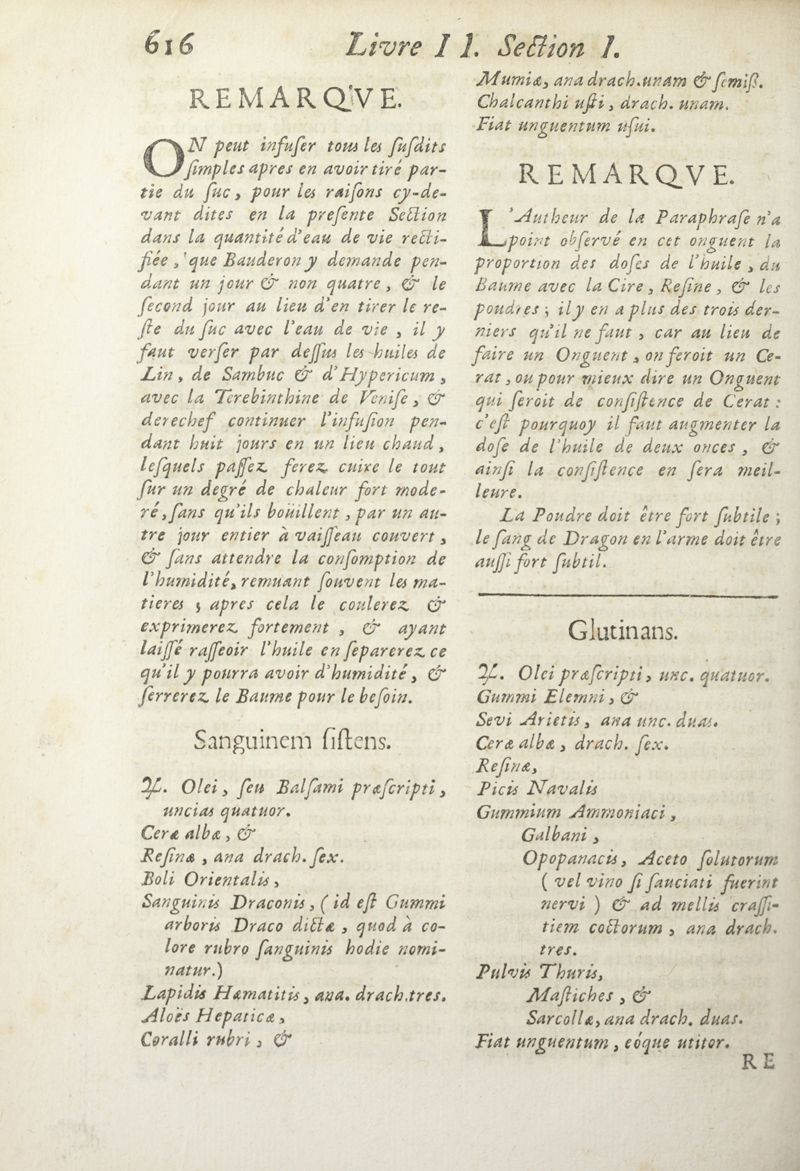 616 Livre II. Section I.
REMARQVE.
ON peut infuser tous les susdits
simples apres en avoir tiré par-
tie du suc, pour les raisons cy-de-
vant dites en la presente Section
dans la quantité d'eau de vie recti-
fiée, que Bauderon y demande pen-
dant un jour & non quatre, & le
second jour au lieu d'en tirer le re-
ste du suc avec l'eau de vie, il y
faut verser par dessus les huiles de
Lin, de Sambuc & d'Hypericum,
avec la Terebinthine de Venise, &
derechef continuer l'infusion pen-
dant huit jours en un lieu chaud,
lesquels passez ferez cuire le tout
sur un degré de chaleur fort mode-
ré, sans qu'ils boüillent, par un au-
tre jour entier à vaisseau couvert,
& sans attendre la consomption de
l'humidité, remuant souvent les ma-
tieres; apres cela le coulerez &
exprimerez fortement, & ayant
laissé rasseoir l'huile en separerez ce
qu'il y pourra avoir d'humidité, &
serrerez le Baume pour le besoin.
Sanguinem sistens.
℞. Olei, seu Balsami præscripti,
uncias quatuor.
Ceræ albæ, &
Resinæ, ana drach. sex.
Boli Orientalis,
Sanguinis Draconis, (id est Gummi
arboris Draco dictæ, quod à co-
lore rubro sanguinis hodie nomi-
natur.)
Lapidis Hæmatitis, ana. drach.tres.
Aloës Hepaticæ,
Coralli rubri, &
Mumiæ, ana drach.unam & semiß.
Chalcanthi usti, drach. unam.
Fiat unguentum usui.
REMARQVE.
L'Autheur de la Paraphrase n'a
point observé en cet onguent la
proportion des doses de l'huile, du
Baume avec la Cire, Resine, & les
poudres; il y en a plus des trois der-
niers qu'il ne faut, car au lieu de
faire un Onguent, on feroit un Ce-
rat, ou pour mieux dire un Onguent
qui seroit de consistence de Cerat:
c'est pourquoy il faut augmenter la
dose de l'huile de deux onces, &
ainsi la consistence en sera meil-
leure.
La Poudre doit être fort subtile;
le sang de Dragon en l'arme doit être
aussi fort subtil.
Glutinans.
℞. Olei præscripti, unc. quatuor.
Gummi Elemni, &
Sevi Arietis, ana unc. duas.
Ceræ albæ, drach. sex.
Resinæ,
Picis Navalis
Gummium Ammoniaci,
Galbani,
Opopanacis, Aceto solutorum
(vel vino si sauciati fuerint
nervi) & ad mellis crassi-
tiem coctorum, ana drach.
tres.
Pulvis Thuris,
Mastiches, &
Sarcollæ, ana drach. duas.
Fiat unguentum, eóque utitor.
RE